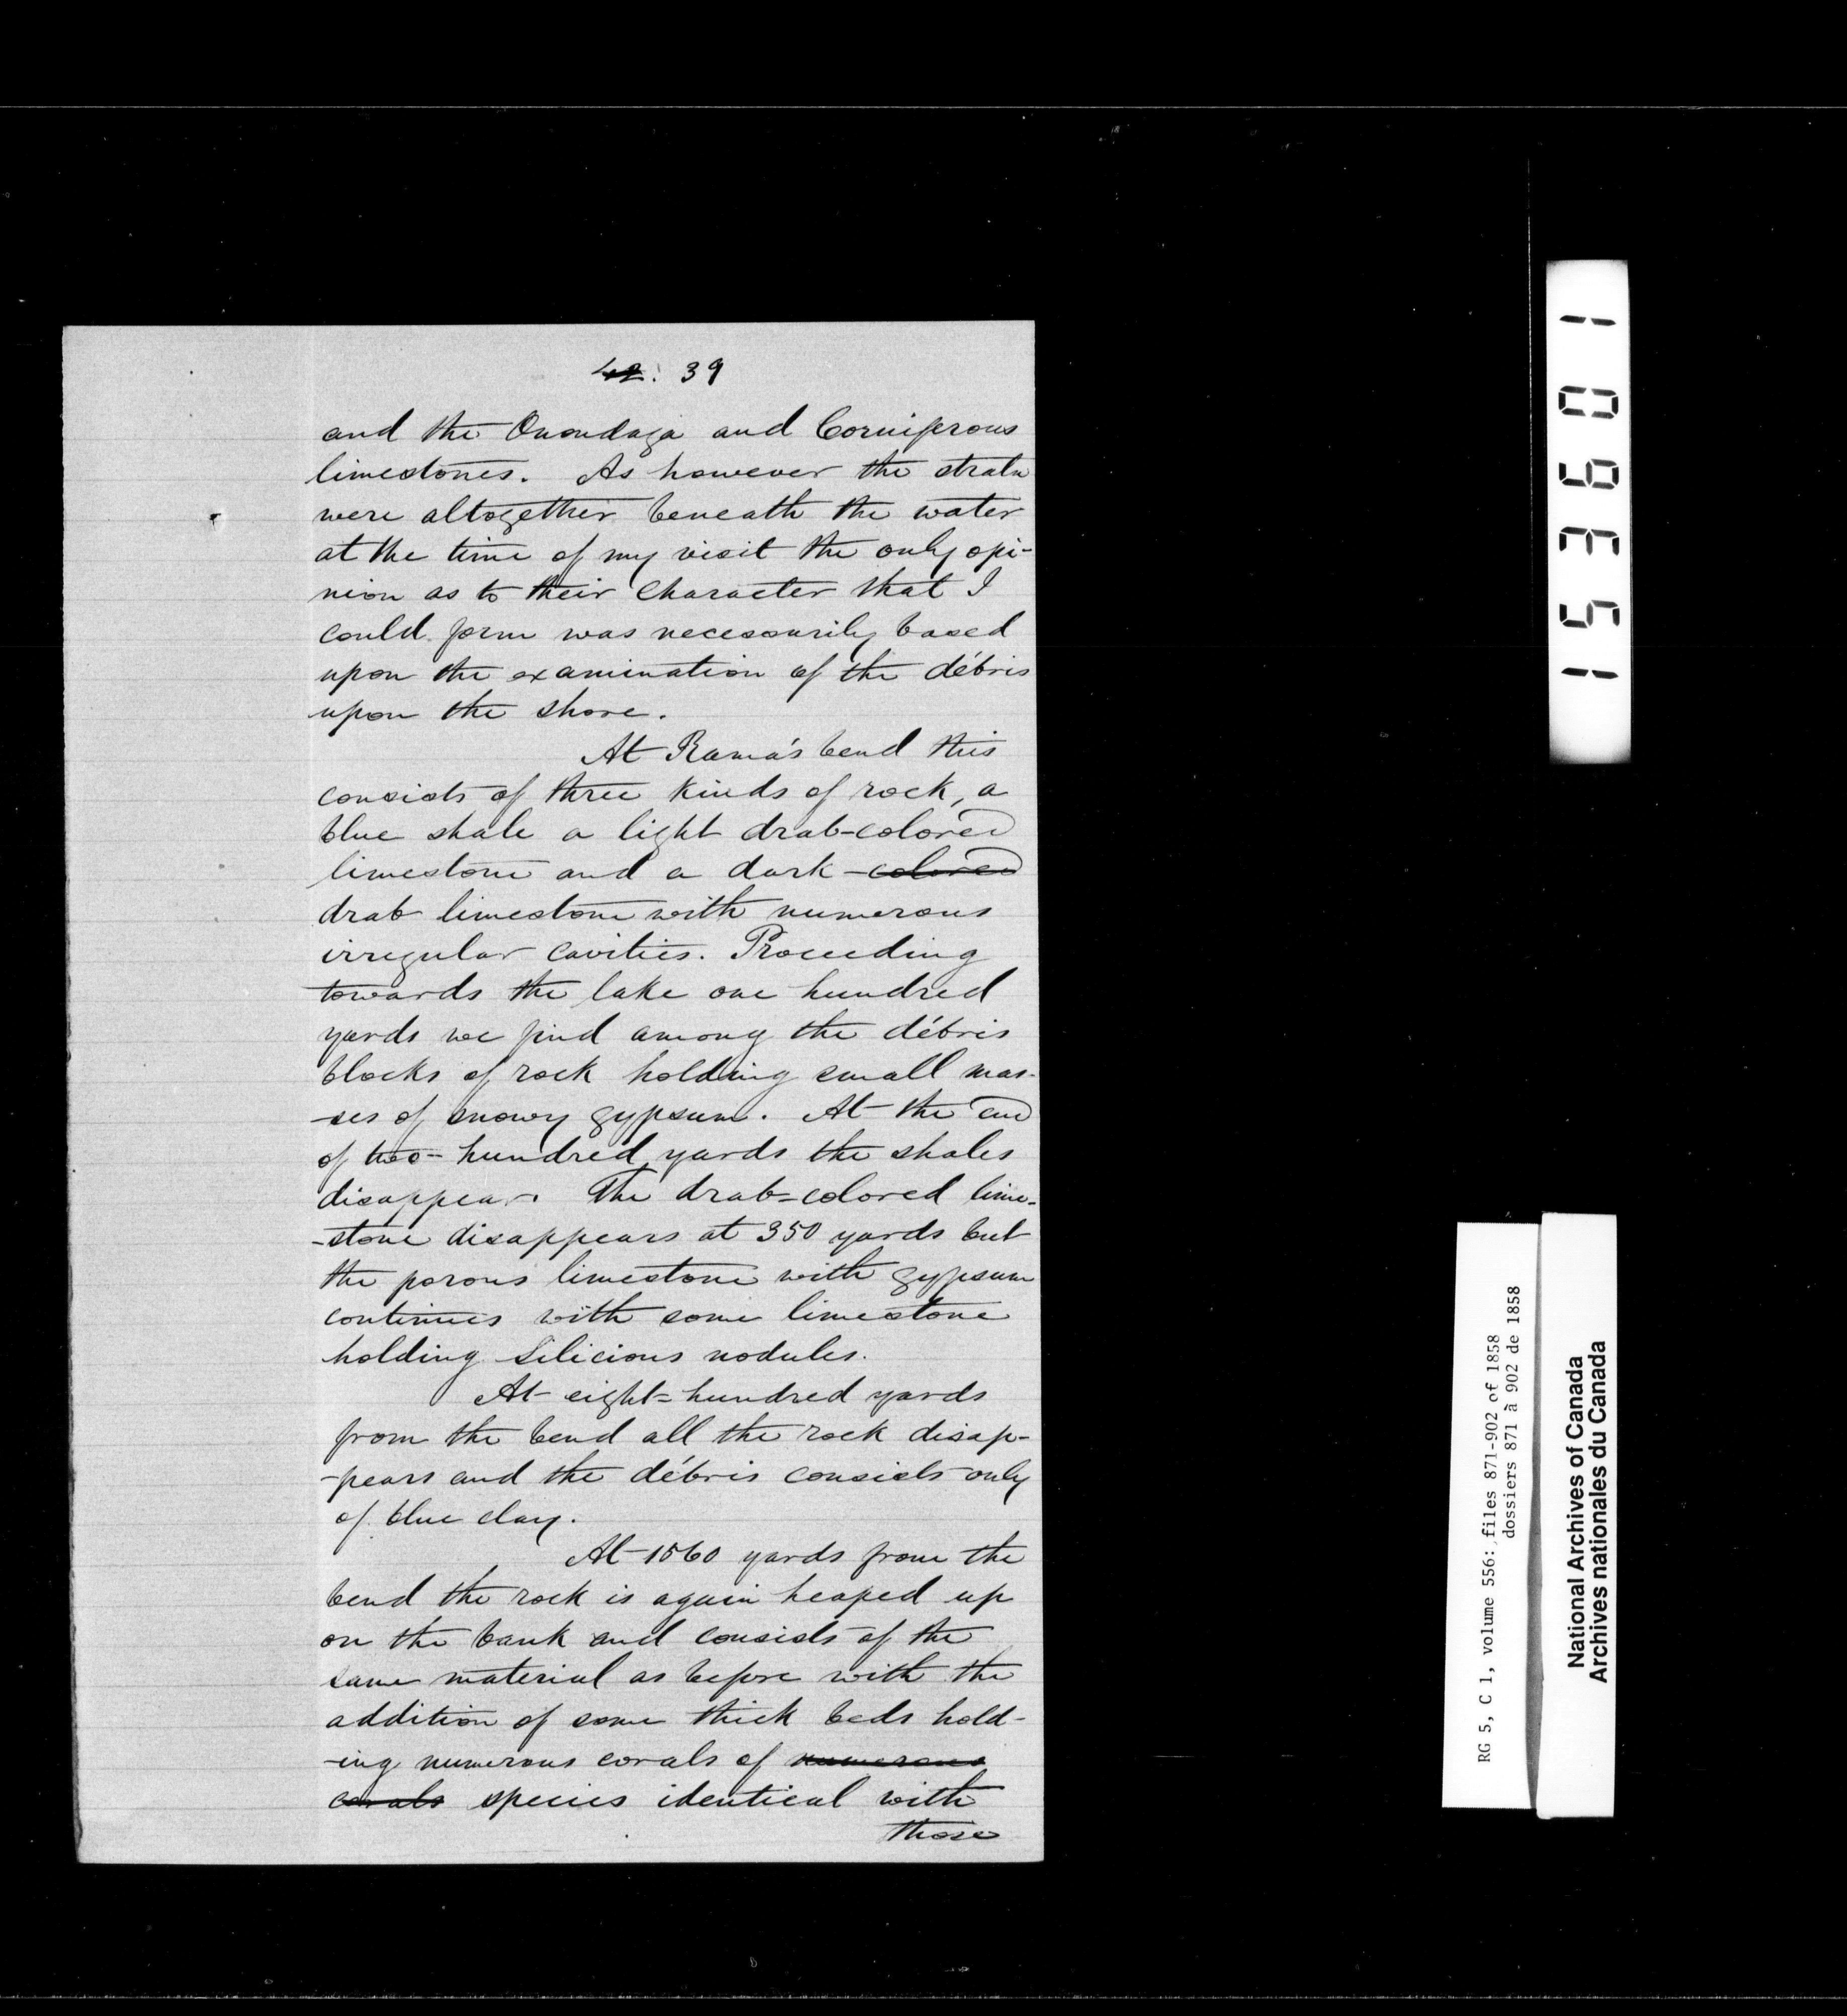 42. 39
and the Onondaga and Corniferous
limestones. As however the strata
were altogether beneath the water
at the time of my visit the only opi-
nion as to their character that I
could form was necessarily based
upon the examination of the débris
upon the shore.
At Rama's bend this
consists of three kinds of rock, a
blue shale a light drab-colored
limestone and a dark-colored
drab limestone with numerous
irregular cavities. Proceeding
towards the lake one hundred
yards we find among the débris
blocks of rock holding small mas-
-ses of snowy gypsum. At the end
of two-hundred yards the shales
disappear. The drab-colored lime-
-stone disappears at 350 yards but
the porous limestone with gypsum
continues with some limestone
holding silicious nodules.
At eight-hundred yards
from the bend all the rock disap-
-pears and the débris consists only
of blue clay.
At 1560 yards from the
bend the rock is again heaped up
on the bank and consists of the
same material as before with the
addition of some thick beds hold-
-ing numerous corals of numerous
corals species identical with
those
153601
RG 5, C 1, volume 556: files 871-902 of 1858
dossiers 871 à 902 de 1858
National Archives of Canada
Archives nationales du Canada